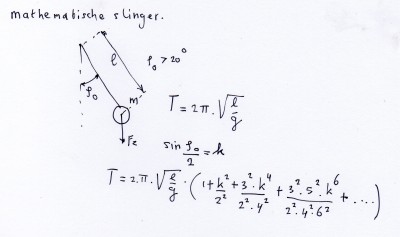 mathematische slinger.
l
φ₀ > 20°
φ₀
m
T = 2π.√(l/g)
Fz
sin φ₀/2 = k
T = 2.π.√(l/g) . (1 + k²/2² + 3².k⁴/2².4² + 3².5².k⁶/2².4².6² + ....)